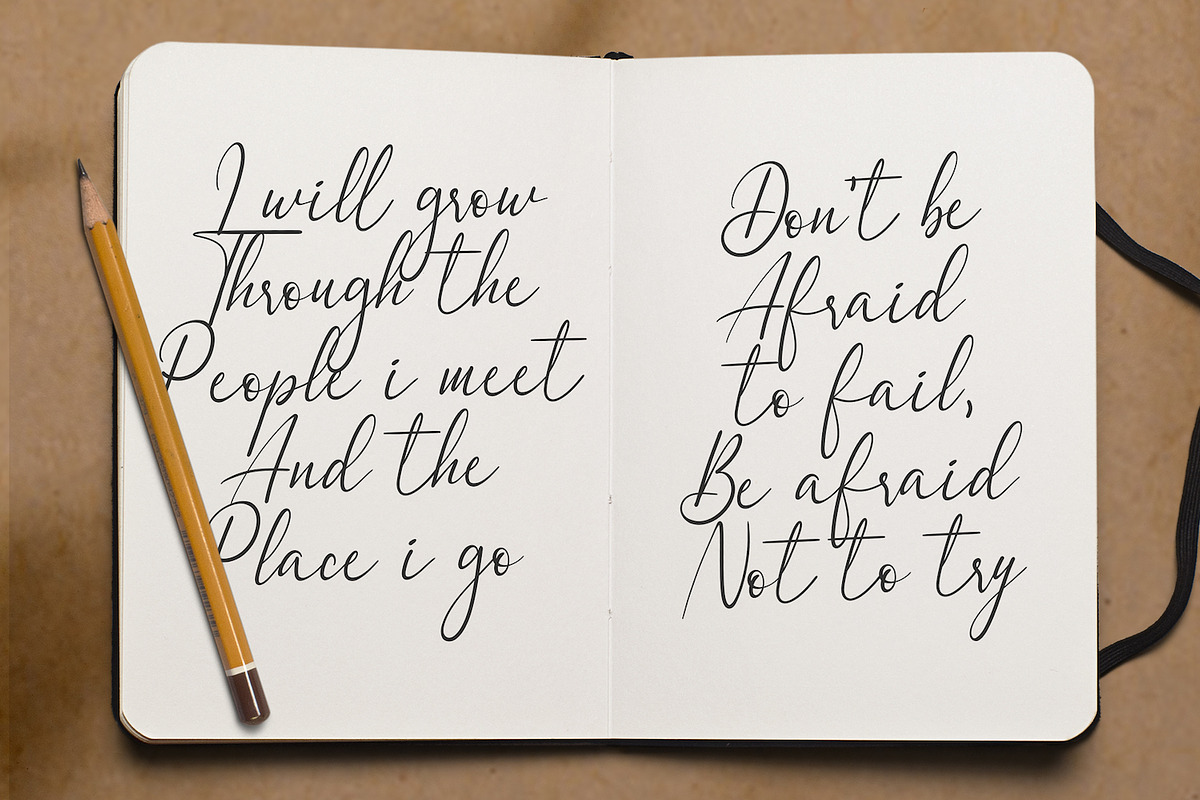 I will grow
Through the
People i meet
And the
Place i go
Don't be
Afraid
to fail,
Be afraid
Not to try